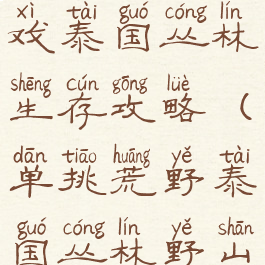 xì tài guó cóng lín
戏泰国丛林
shēng cún gōng lüè
生存攻略（
dān tiāo huāng yě tài
单挑荒野泰
guó cóng lín yě shān
国丛林野山